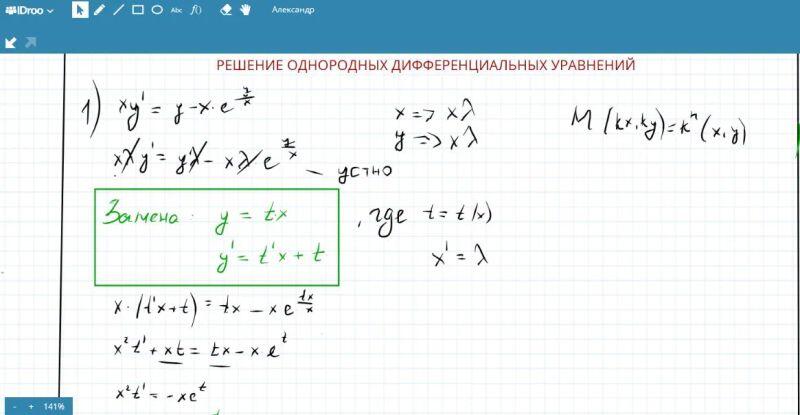 IDroo
Abc
f()
Александр
РЕШЕНИЕ ОДНОРОДНЫХ ДИФФЕРЕНЦИАЛЬНЫХ УРАВНЕНИЙ
1) xy' = y - x · e^(y/x)
x => xλ
y => xλ
M(kx, ky) = kⁿ(x, y)
xλy' = yλ - xλe^(y/x) - устно
Замена: y = tx
y' = t'x + t
, где t = t(x)
x' = λ
x · (t'x + t) = tx - xe^(tx/x)
x²t' + xt = tx - xe^t
x²t' = -xe^t
- + 141%